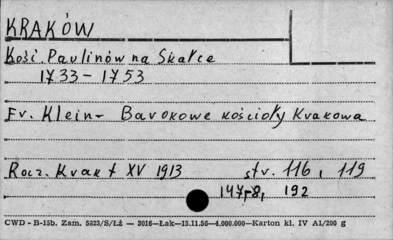 KRAKÓW
Kość. Paulinów na Skałce
1733 - 1753
Fr. Klein - Barokowe kościoły Krakowa
Rocz. Krak t XV 1913 str. 116, 119
147, 8, 192
CWD - B-15b. Zam. 5823/S/Łż — 3016—Łak—15.11.56—4.000.000—Karton kl. IV A1/200 g